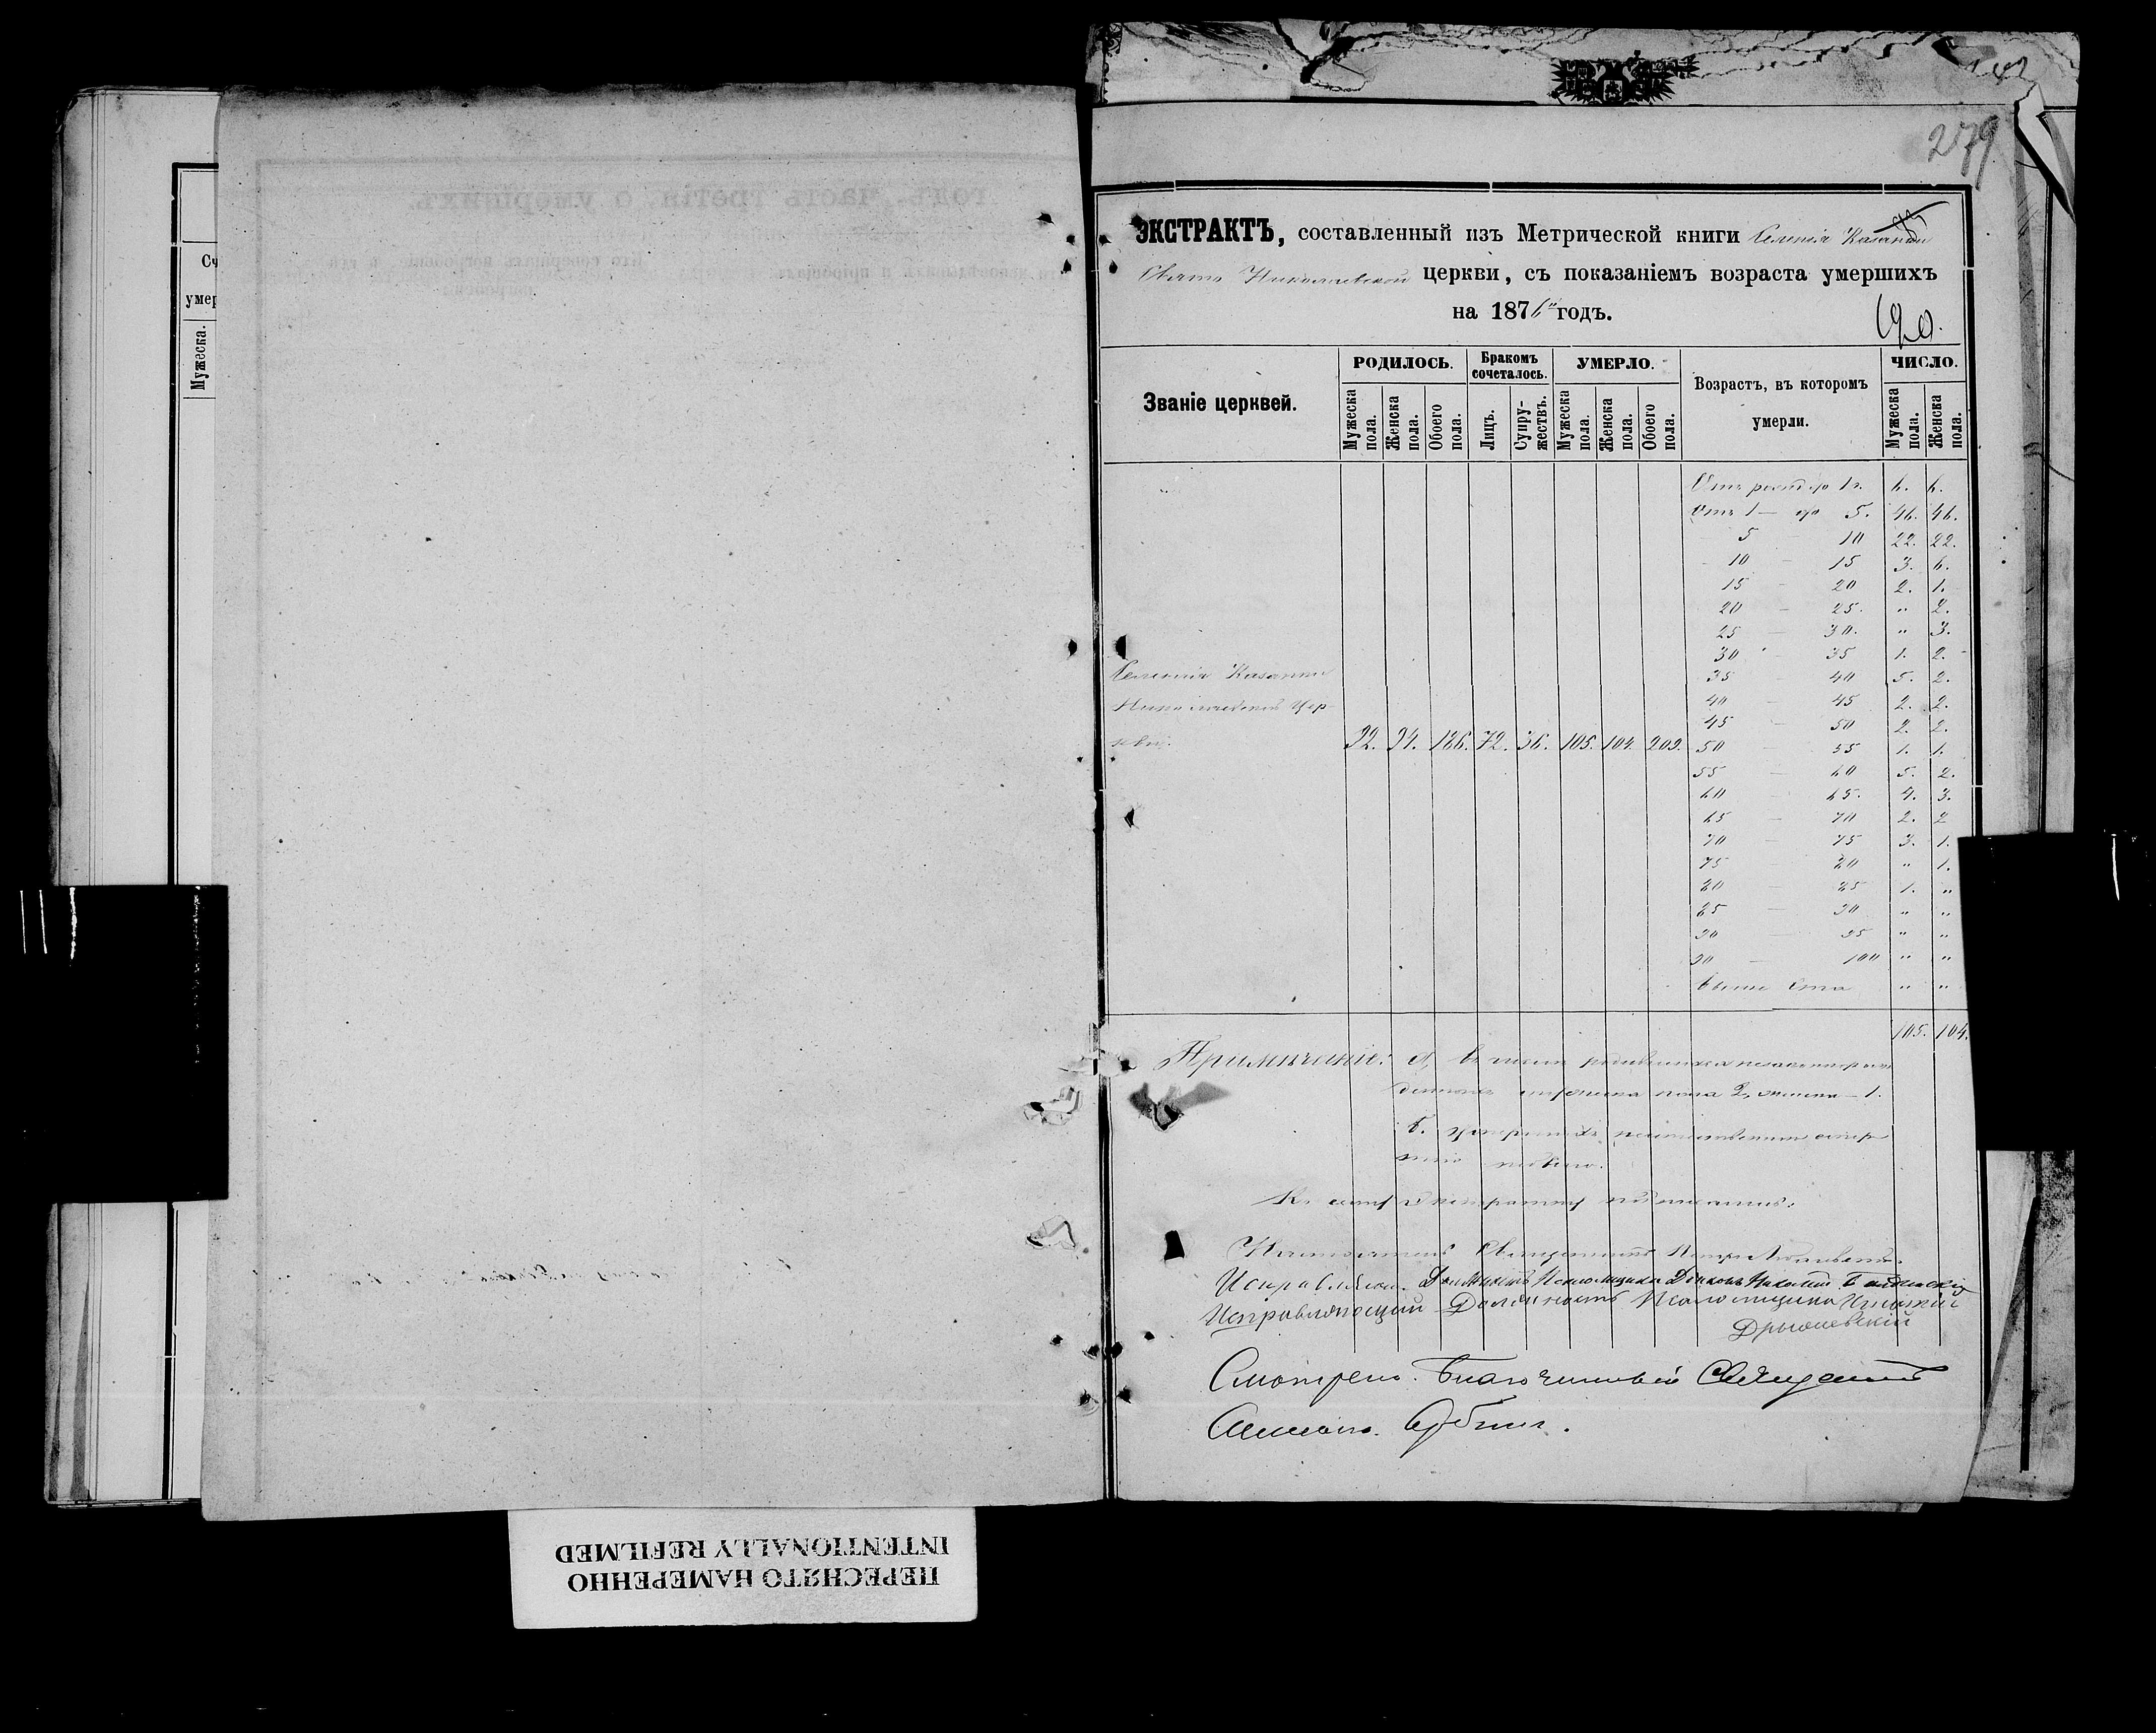 Сч
умер
Мужеска.
279
ЭКСТРАКТЪ, составленный изъ Метрической книги Селенія Казанки
Свято Николаевской церкви, съ показаніемъ возраста умершихъ
на 1876й годъ.
190.
Званіе церквей.
РОДИЛОСЬ.
Бракомъ сочеталось.
УМЕРЛО.
Возрастъ, въ которомъ умерли.
ЧИСЛО.
Мужеска пола.
Женска пола.
Обоего пола.
Лицъ.
Супружествъ.
Мужеска пола.
Женска пола.
Обоего пола.
Мужеска пола.
Женска пола.
Отъ рожд. до 1 г. 6. 6.
Отъ 1 — до 5. 46. 46.
5 — 10 22. 22.
10 — 15 3. 6.
15 — 20 2. 1.
20 — 25. " 2.
25 — 30. " 3.
30 — 35 1. 2.
35 — 40 5. 2.
40 — 45 2. 2.
45 — 50 2. 2.
50 — 55 1. 1.
55 — 60 5. 2.
60 — 65. 4. 3.
65 — 70 2. 2
70 — 75 3. 1.
75 — 80 " 1.
80 — 85 1. "
85 — 90 " "
90 — 95 " "
90 — 100 " "
выше ста " "
Селенія Казанки
Николаевской Цер-
кви. 92. 94. 186. 72. 36. 105. 104. 209.
105. 104.
Примѣчаніе: а, въ числѣ родившихся незаконнорож
денныхъ мужеска пола 2, женска — 1.
б. умершихъ неестественною смер
тію небыло.
Къ сему Экстракту подписались:
Настоятель Священникъ
Исправляющ. Должность Псаломщика Діаконъ
Исправляющій Должность Псаломщика
Смотрелъ. Благочинный Священникъ